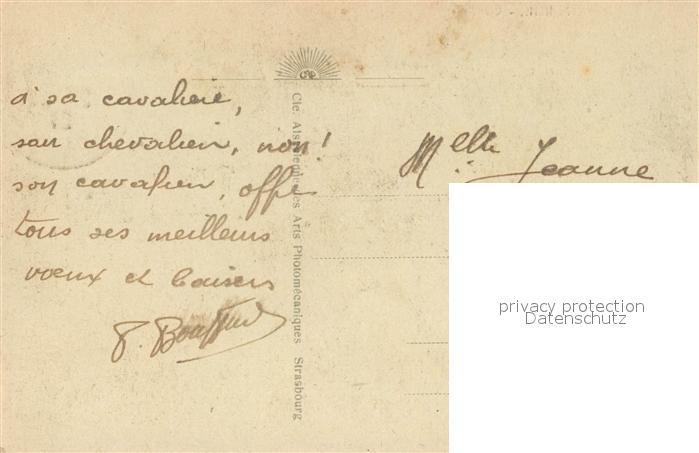 à sa cavalière,
son chevalier, non !
son cavalier, offre
tous ses meilleurs
vœux et baisers
Melle Jeanne
Cie. Alsacienne des Arts Photomécaniques Strasbourg
privacy protection
Datenschutz